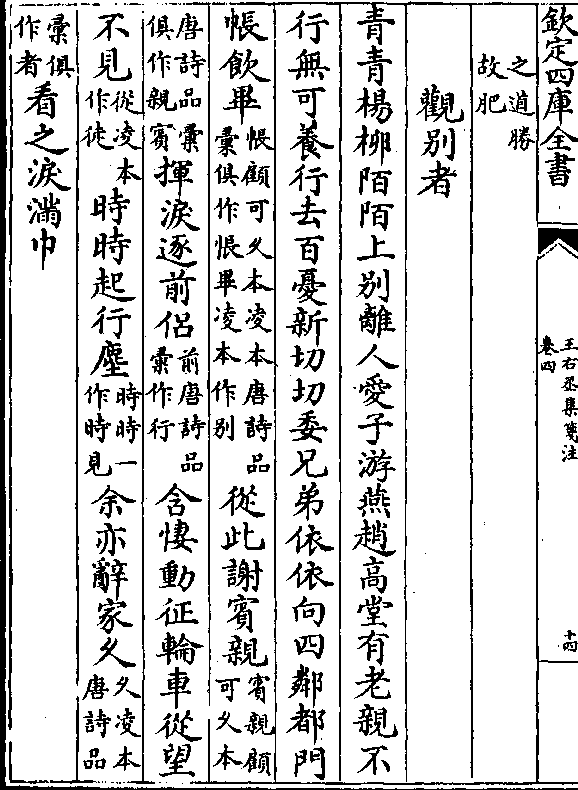 欽定四庫全書
王右丞集箋注
卷四
十四
之道勝
故肥
觀别者
青青楊栁陌陌上别離人愛子游燕趙髙堂有老親不
行無可養行去百憂新切切委兄弟依依向四鄰都門
帳飲畢帳顧可久本凌本唐詩品
彚俱作悵畢凌本作别從此謝賓親賓親顧
可久本
唐詩品彚
俱作親賓揮淚逐前侣前唐詩品
彚作行含悽動征輪車從望
不見從凌本
作徒時時起行塵時時一
作時見余亦辭家久久凌本
唐詩品
彚俱
作者看之淚滿巾